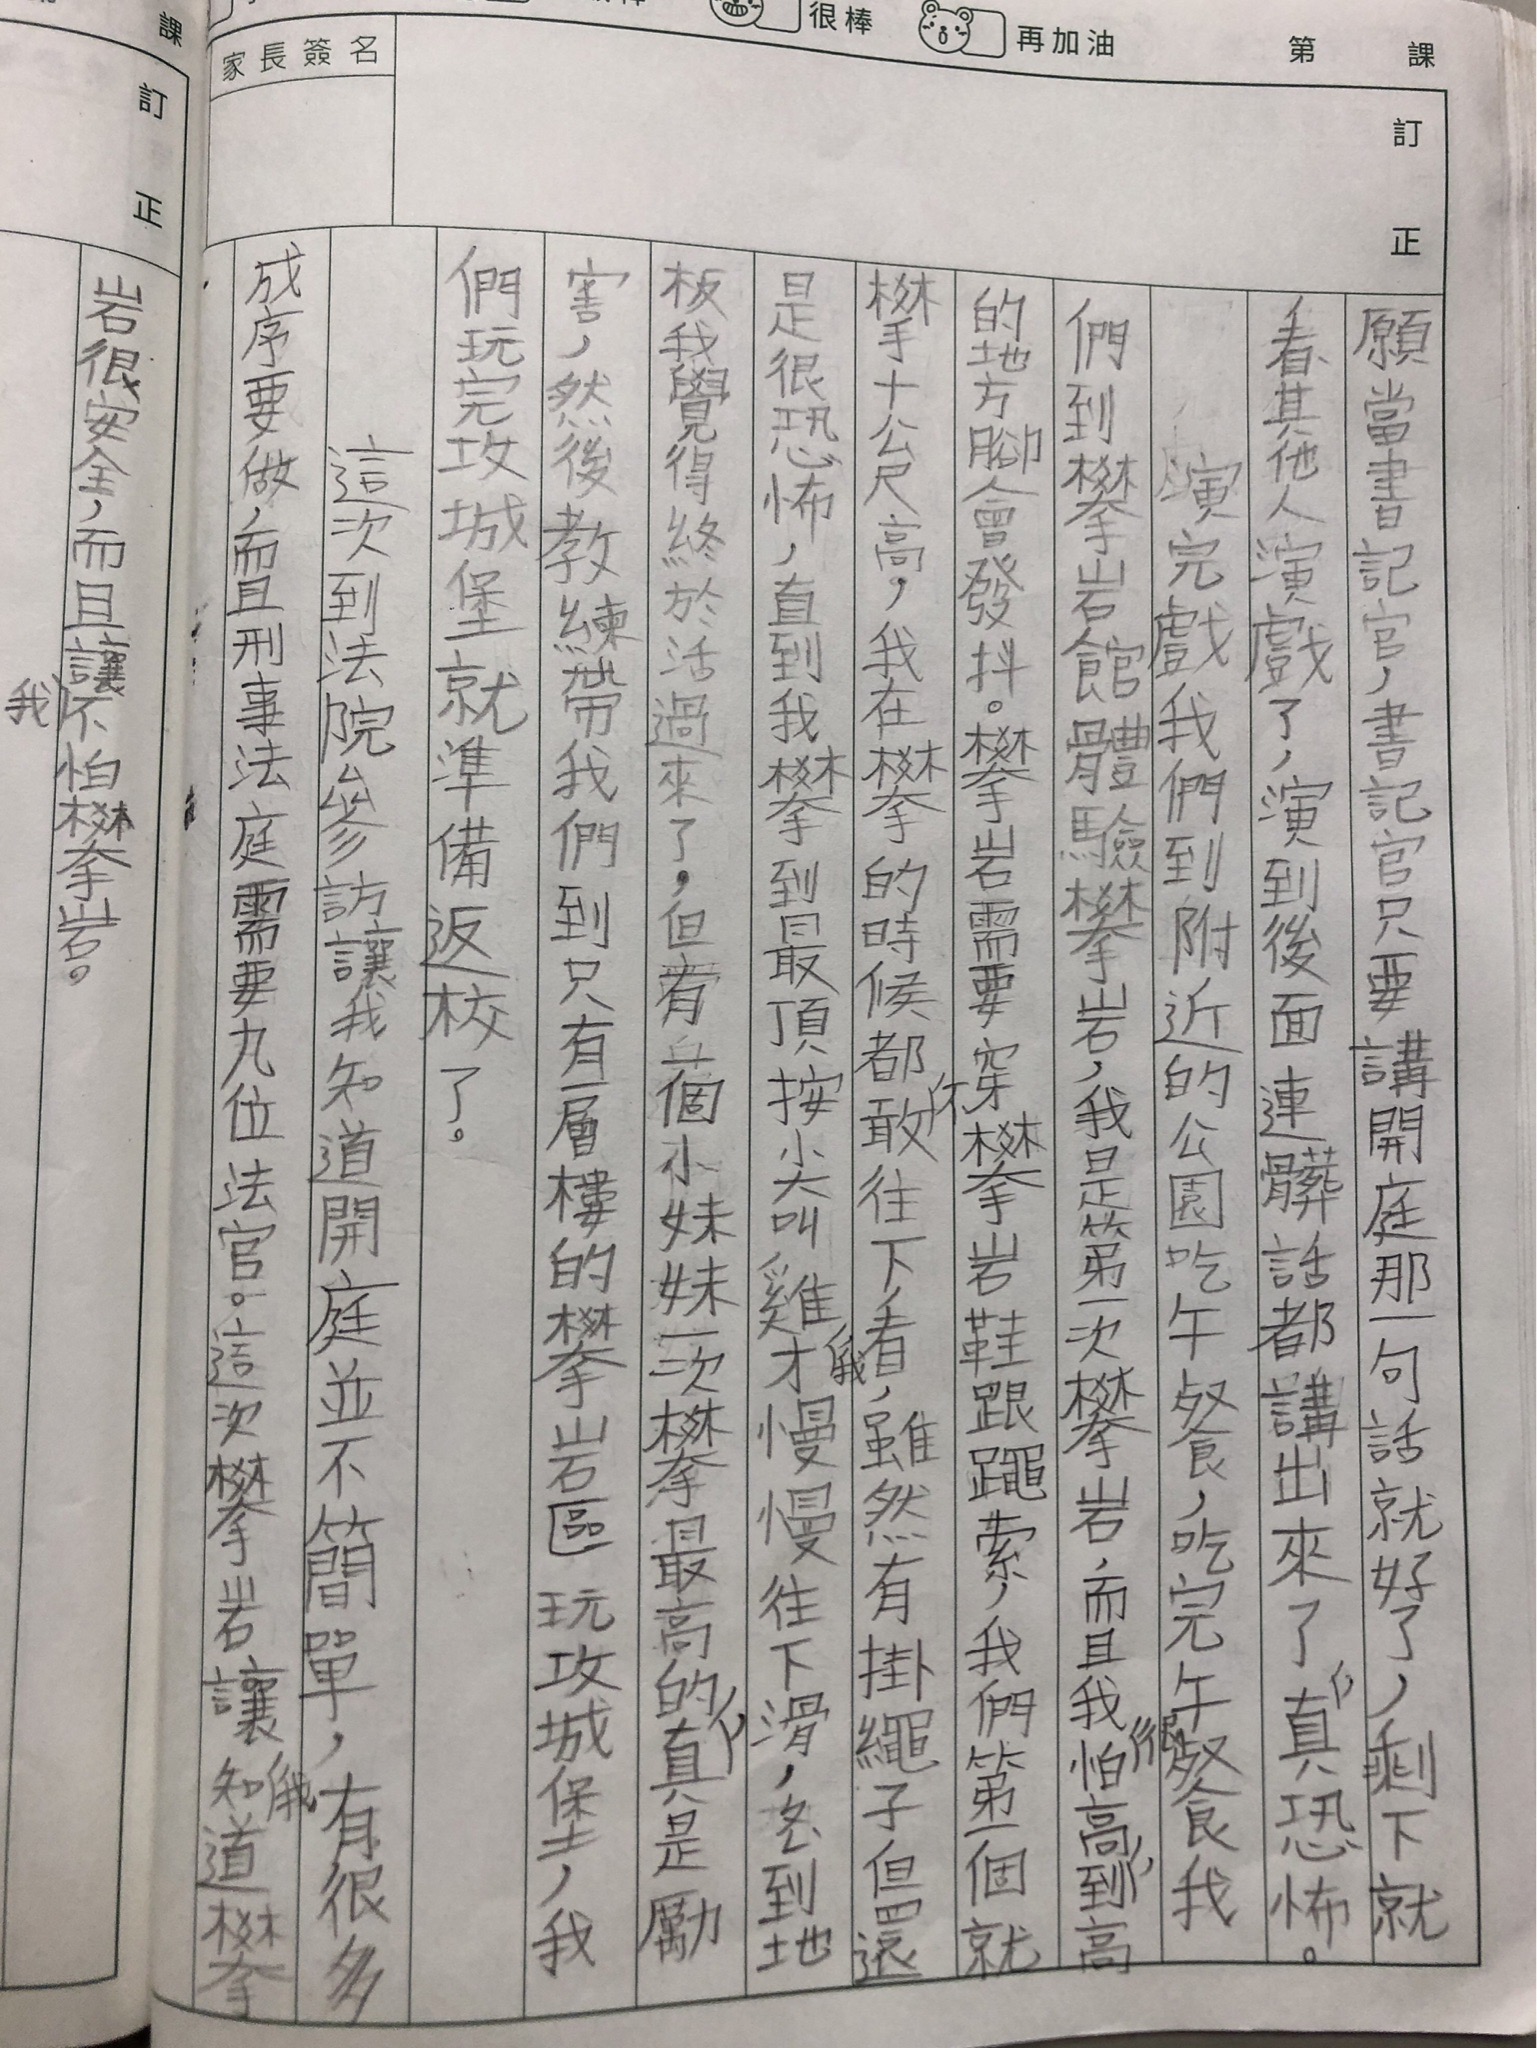 很棒
再加油
第 課
訂正
家長簽名
願當書記官，書記官只要講開庭那一句話就好了，剩下就
看其他人演戲了，演到後面連髒話都講出來了，真恐怖。
演完戲我們到附近的公園吃午餐，吃完午餐我
們到攀岩館體驗攀岩，我是第一次攀岩，而且我很怕高，到高
的地方腳會發抖。攀岩需要穿攀岩鞋跟繩索，我們第一個就
攀十公尺高，我在攀的時候都不敢往下看，雖然有掛繩子但還
是很恐怖，直到我攀到最頂按尖叫雞我才慢慢往下滑，到地
板我覺得終於活過來了，但有一個小妹妹一次攀最高的，真是勵
害，然後教練帶我們到只有一層樓的攀岩區玩攻城堡，我
們玩完攻城堡就準備返校了。
這次到法院參訪讓我知道開庭並不簡單，有很多
成序要做，而且刑事法庭需要九位法官。這次攀岩讓我知道攀
課
訂正
岩很安全，而且讓我不怕攀岩。